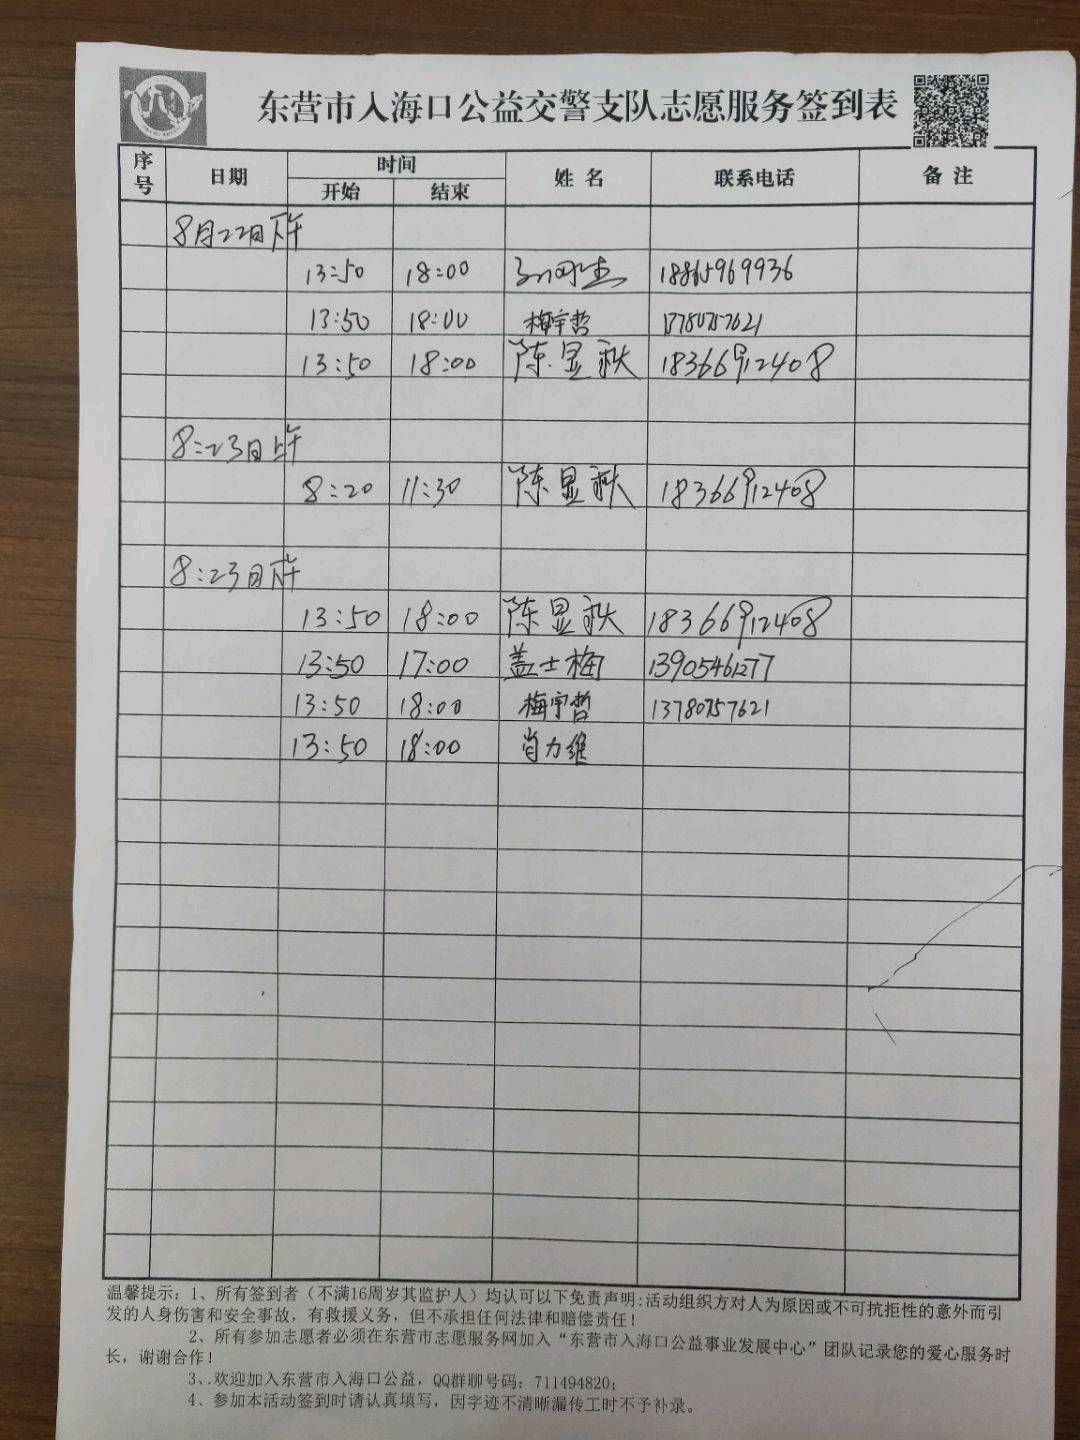 东营市入海口公益交警支队志愿服务签到表
序号 日期 时间 姓名 联系电话 备注
开始 结束
8月22日下午
13:50 18:00 18865969936
13:50 18:00 梅宇哲 13780757621
13:50 18:00 陈显秋 18366912408
8:23日上午
8:20 11:30 陈显秋 18366912408
8:23日下午
13:50 18:00 陈显秋 18366912408
13:50 17:00 盖士梅 13905461277
13:50 18:00 梅宇哲 13780757621
13:50 18:00 肖力维
温馨提示:1、所有签到者(不满16周岁其监护人)均认可以下免责声明:活动组织方对人为原因或不可抗拒性的意外而引
发的人身伤害和安全事故,有救援义务,但不承担任何法律和赔偿责任!
2、所有参加志愿者必须在东营市志愿服务网加入“东营市入海口公益事业发展中心”团队记录您的爱心服务时
长,谢谢合作!
3、.欢迎加入东营市入海口公益,QQ群聊号码:711494820;
4、参加本活动签到时请认真填写,因字迹不清晰漏传工时不予补录。